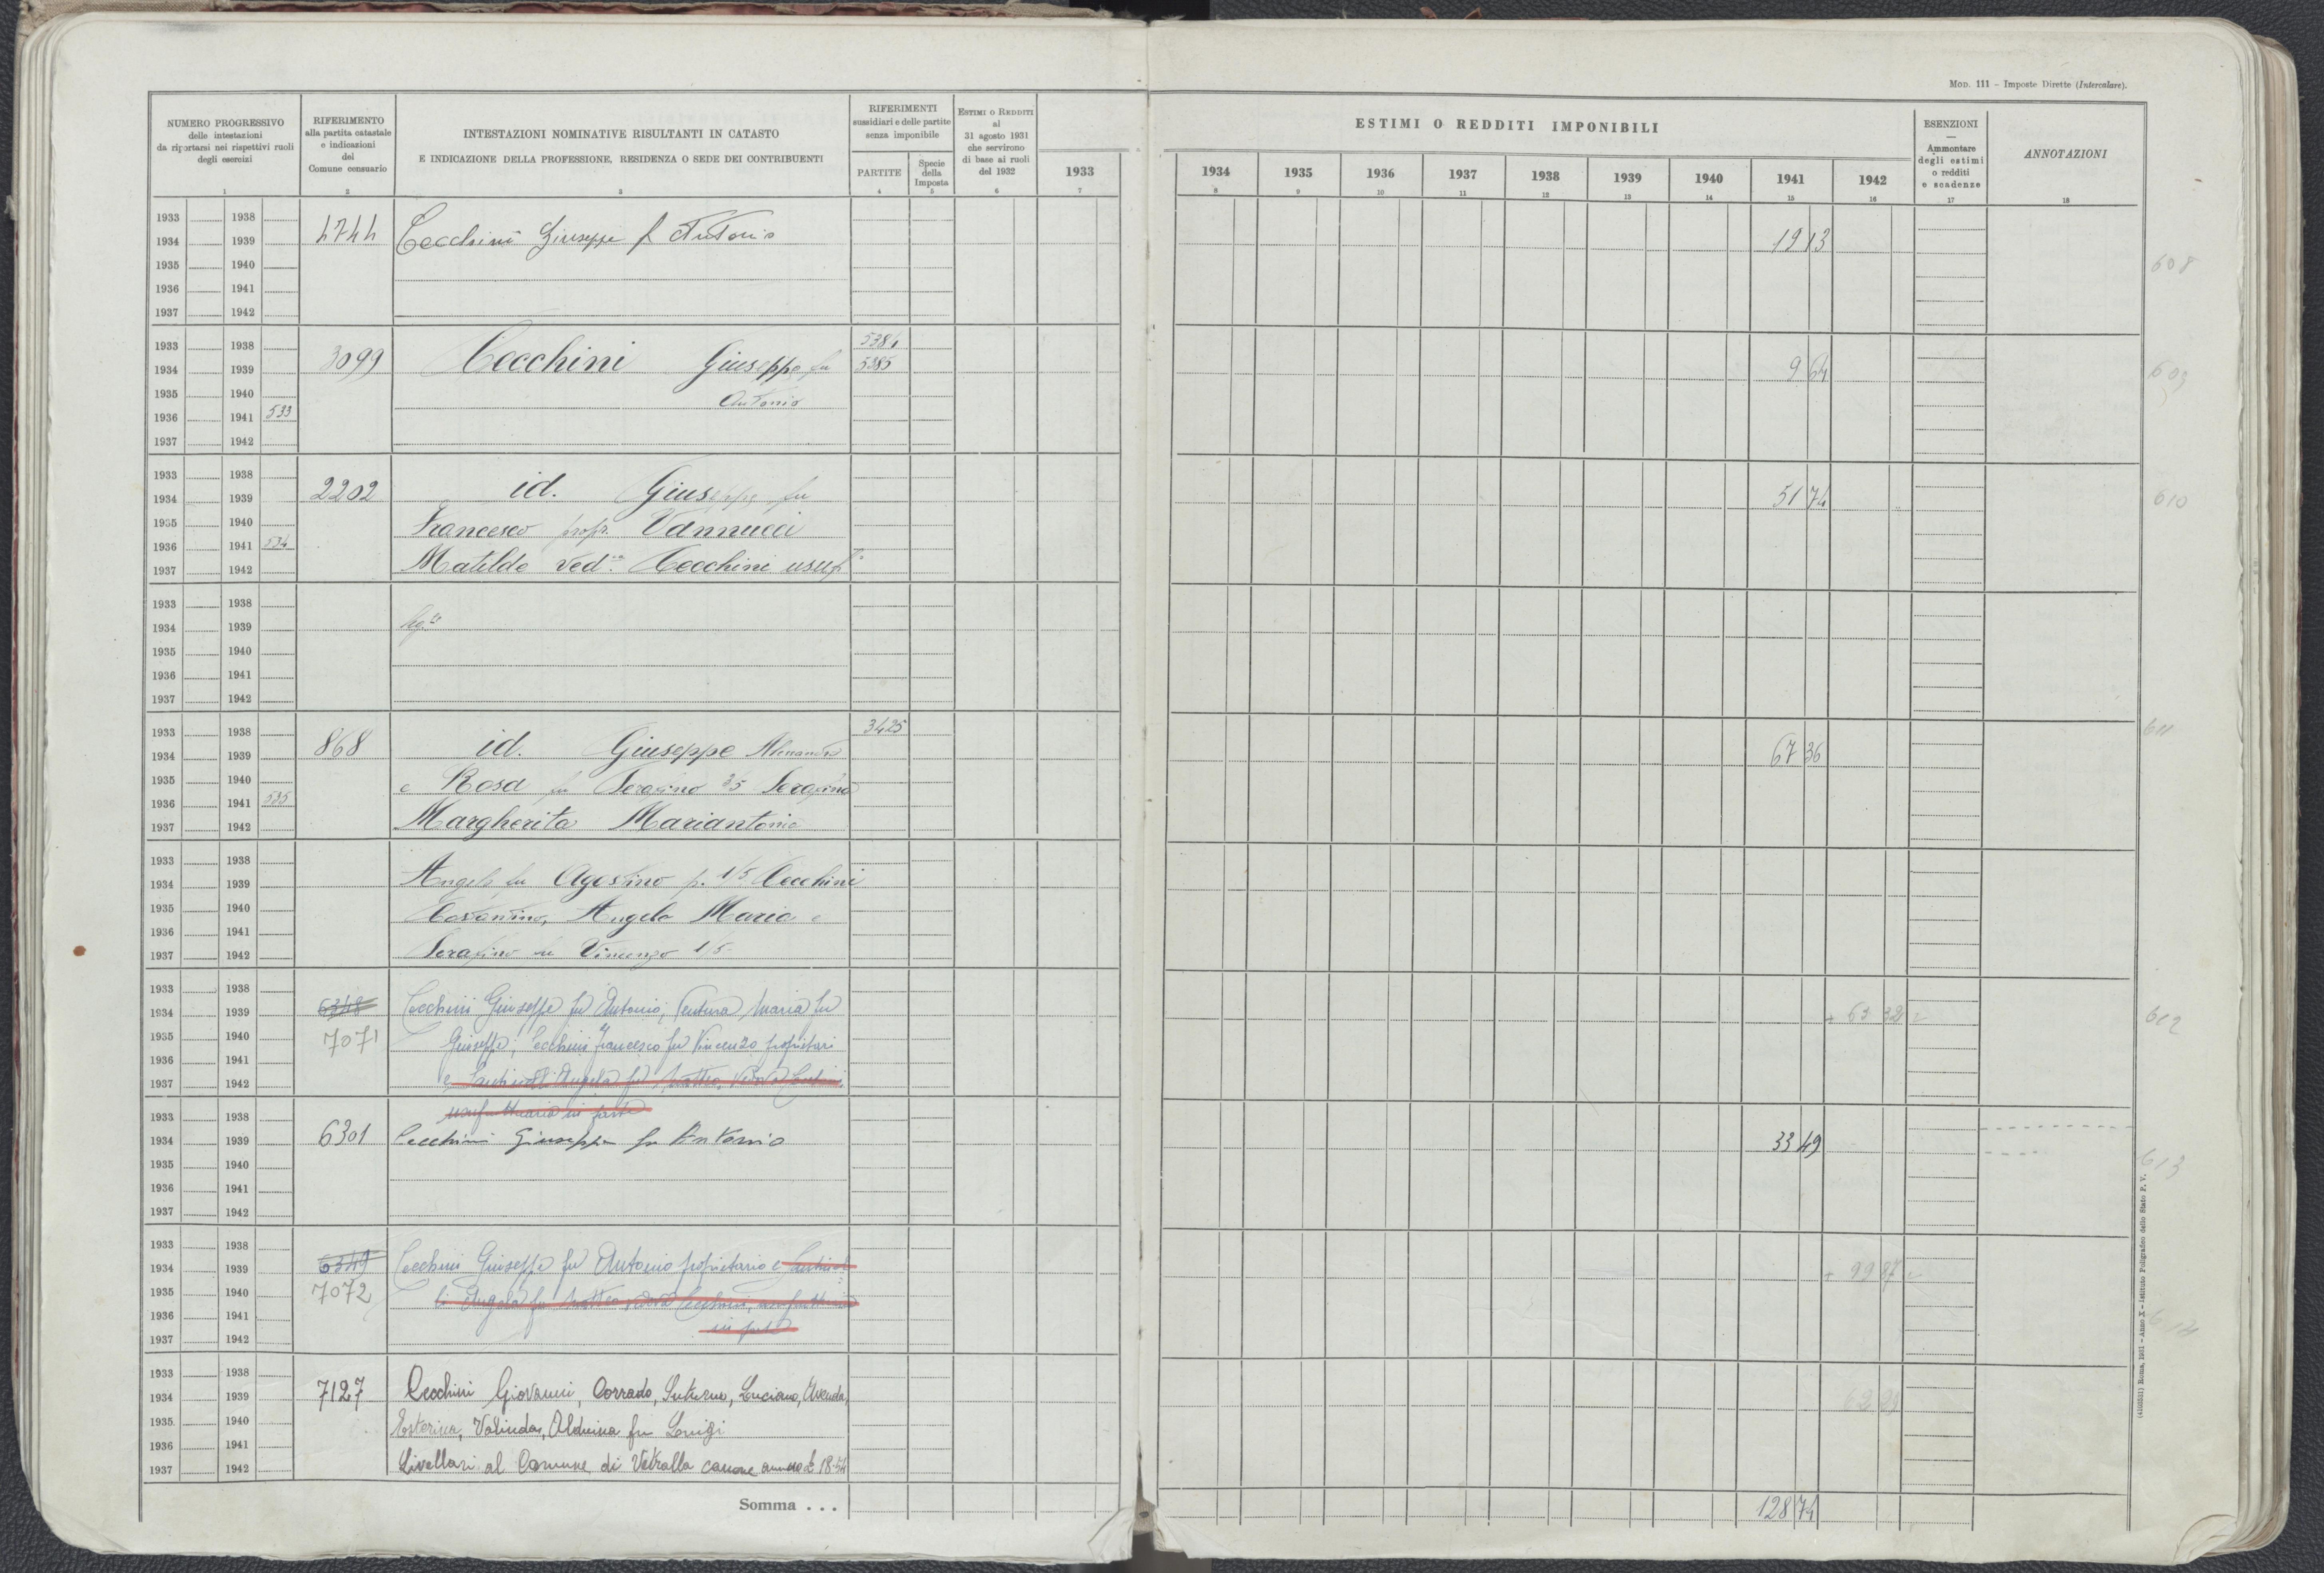 MOD. 111 – Imposte Dirette (Intercalare).
NUMERO PROGRESSIVO
delle intestazioni
da riportarsi nei rispettivi ruoli
degli esercizi
1
RIFERIMENTO
alla partita catastale
e indicazioni
del
Comune censuario
2
INTESTAZIONI NOMINATIVE RISULTANTI IN CATASTO
E INDICAZIONE DELLA PROFESSIONE, RESIDENZA O SEDE DEI CONTRIBUENTI
3
RIFERIMENTI
sussidiari e delle partite
senza imponibile
PARTITE
4
Specie
della
Imposta
5
ESTIMI O REDDITI
al
31 agosto 1931
che servirono
di base ai ruoli
del 1932
6
1933
7
ESTIMI O REDDITI IMPONIBILI
1934 1935 1936 1937 1938 1939 1940 1941 1942
8 9 10 11 12 13 14 15 16
ESENZIONI
—
Ammontare
degli estimi
o redditi
e scadenze
17
ANNOTAZIONI
18
1933 1938
1934 1939 4744 Cecchini Giuseppe f Antonio 19 13
1935 1940 608
1936 1941
1937 1942
1933 1938 5384
1934 1939 3099 Cecchini Giuseppe fu 5385 9 64 609
1935 1940 Antonio
1936 1941 533
1937 1942
1933 1938
1934 1939 2202 id. Giuseppe fu 51 74 610
1935 1940 Francesco propr. Vannucci
1936 1941 534
1937 1942 Matilde ved. Cecchini usuf
1933 1938
1934 1939
1935 1940
1936 1941
1937 1942
1933 1938 3425 611
1934 1939 868 id. Giuseppe Alessandro 67 36
1935 1940 e Rosa fu Serafino 3/5 Serafino
1936 1941 535
1937 1942 Margherita Mariantonia
1933 1938
1934 1939 Angelo fu Agostino p. 1/5 Cecchini
1935 1940 Costantino, Angelo Maria e
1936 1941
1937 1942 Serafino fu Vincenzo 1/5
1933 1938
1934 1939 6348 Cecchini Giuseppe fu Antonio; Ventura Maria fu + 63 32 612
1935 1940 7071 Giuseppe; Cecchini Francesco fu Vincenzo proprietari
1936 1941
1937 1942 e Angela fu Matteo, vedova Cecchini,
1933 1938 usufruttuaria in parte
1934 1939 6301 Cecchini Giuseppe fu Antonio 33 49
1935 1940 613
1936 1941
1937 1942
1933 1938
1934 1939 6349 Cecchini Giuseppe fu Antonio proprietario e + 99 87
1935 1940 7072 Angela fu Matteo vedova Cecchini, usufruttuaria
1936 1941 in parte 614
1937 1942
1933 1938
1934 1939 7127 Cecchini Giovanni, Corrado, Luciano, 62 29
1935 1940 Esterina, Valinda, fu Luigi
1936 1941
1937 1942 Livellari al Comune di Vetralla canone annuo £ 18.54
Somma . . . 128 74
(4160551) Roma, 1931 – Anno X – Istituto Poligrafico dello Stato P. V.